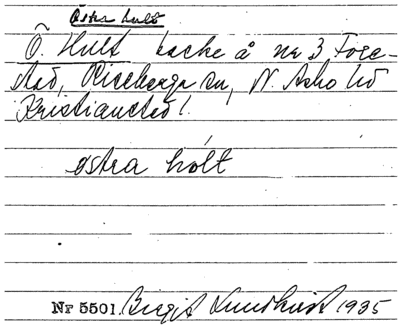 Östra hult
Ö. Hult backe å nr 3 Fore-
stad, Riseberga sn, N. Åsbo hd
Kristianstad l.
östra hólt
Nr 5501. Birgit Lundkvist 1935